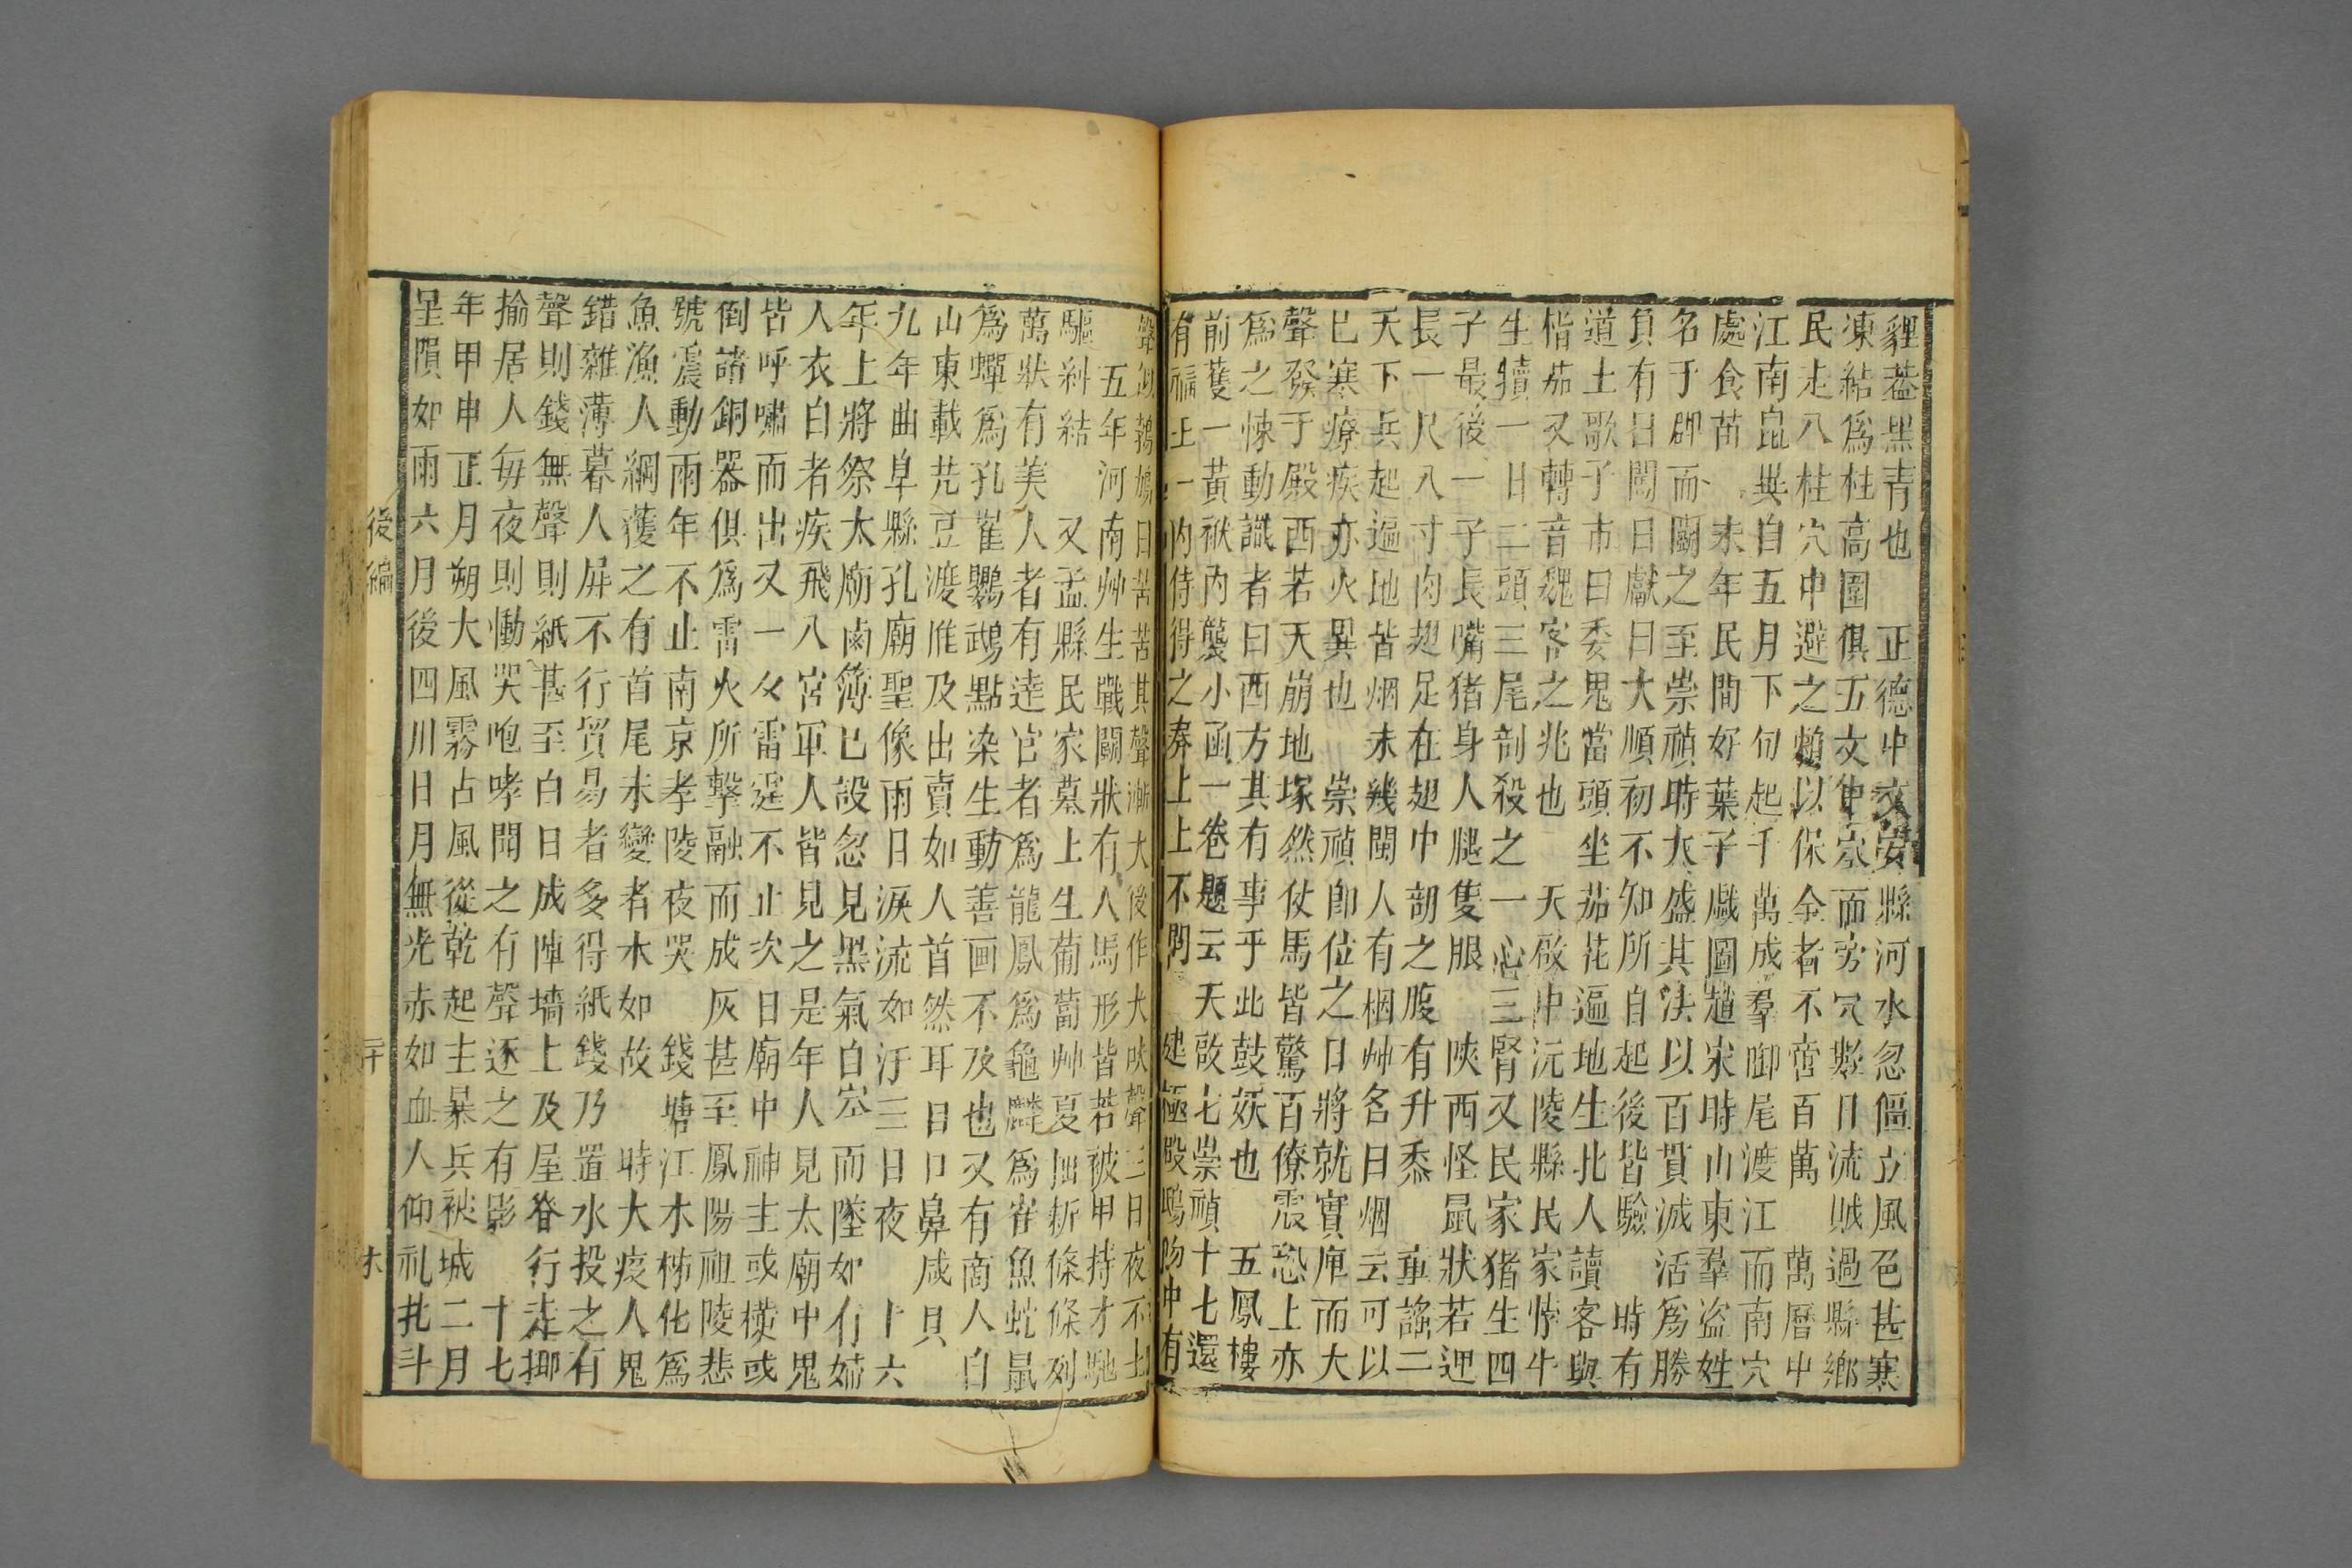 貍葢黑青也　正德中文安縣河水忽僵立風色甚寒
凍結爲柱高圍俱五丈中空而旁穴數日流賊過縣鄉
民走入柱穴中避之頼以保全者不啻百萬　萬曆中
江南鼠異自五月下旬起千萬成羣啣尾渡江而南穴
處食苗　末年民間好葉子戲圖趙宋時山東羣盗姓
名于牌而鬭之至崇禎時大盛其法以百貫滅活爲勝
負有曰闖曰獻曰大順初不知所自起後皆驗　時有
道士歌于市曰委鬼當頭坐茄花遍地生北人讀客與
楷茄又轉音魏客之兆也　天啟中沅陵縣民家牸牛
生犢一日二頭三尾剖殺之一心三腎又民家猪生四
子最後一子長嘴猪身人腿隻眼　陝西怪鼠狀若狸
長一尺八寸肉翅足在翅中剖之腹有升黍　童謡二
天下兵起遍地皆烟未幾閩人有梱艸名曰烟云可以
已寒療疾亦火異也　崇禎卽位之日將就寶座而大
聲發于殿西若天崩地塚然仗馬皆驚百僚震恐上亦
爲之悚動識者曰西方其有事乎此鼓妖也　五鳳樓
前獲一黃袱內襲小函一卷題云天啟七崇禎十七還
有福王一內侍得之奏上上不問　建極殿鴟吻中有
聲如鵓鴣曰苦苦其聲漸大後作犬吠聲三日夜不止
五年河南艸生戰鬬狀有人馬形皆若被甲持才馳
驅糾結　又孟縣民家墓上生葡萄艸夏掘新條條列
萬狀有美人者有逹官者爲龍鳳爲龜麟爲雀魚蛇鼠
爲蟬爲孔雀鸚鵡點染生動善画不及也又有商人自
山東載芫豆渡淮及出賣如人首然耳目口鼻咸具
九年曲阜縣孔廟聖像雨日淚流如汙三日夜　十六
年上將祭太廟鹵簿已設忽見黑氣自空而墜如有婦
人衣白者疾飛入宮軍人皆見之是年人見太廟中鬼
皆呼嘯而出又一夕雷霆不止次日廟中神主或橫或
倒諸銅器俱爲雷火所擊融而成灰甚至鳳陽祖陵悲
號震動雨年不止南京孝陵夜哭　錢塘江木柹化爲
魚漁人網獲之有首尾未變者木如故　時大疫人鬼
錯雜薄暮人屏不行貿易者多得紙錢乃置水投之有
聲則錢無聲則紙甚至白日成陣墻上及屋脊行走揶
揄居人每夜則慟哭咆哮聞之有聲逐之有影　十七
年甲申正月朔大風霧占風從乾起主暴兵被城二月
星隕如雨六月後四川日月無光赤如血人仰視北斗
後編
二十